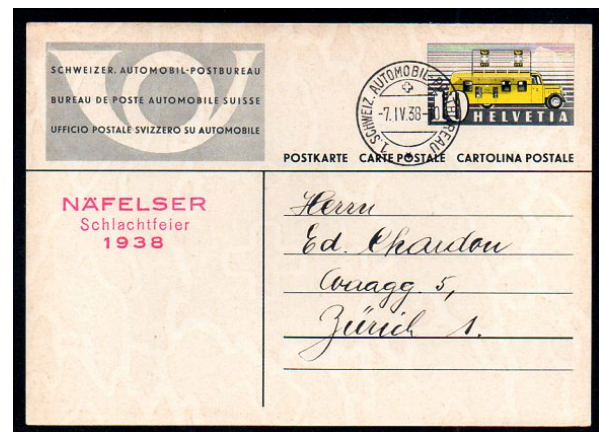 SCHWEIZER. AUTOMOBIL-POSTBUREAU
BUREAU DE POSTE AUTOMOBILE SUISSE
UFFICIO POSTALE SVIZZERO SU AUTOMOBILE
1. SCHWEIZ. AUTOMOBIL-POSTBUREAU
-7.IV.38-
10
HELVETIA
POSTKARTE CARTE POSTALE CARTOLINA POSTALE
NÄFELSER
Schlachtfeier
1938
Herrn
Ed. Chardon
5,
Zürich 1.